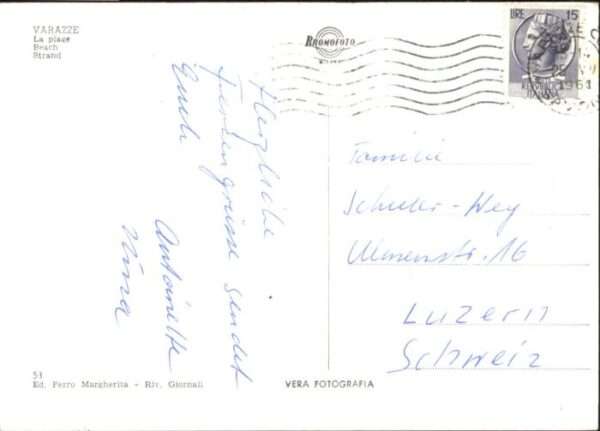 VARAZZE
La plage
Beach
Strand
BROMOFOTO
LIRE 15
1961
Herzliche
Feriengrüsse sendet
Euch
Antoinette
Familie
Schuler-Wey
Ulmenstr. 16
Luzern
Schweiz
51
Ed. Ferro Margherita - Riv. Giornali
VERA FOTOGRAFIA